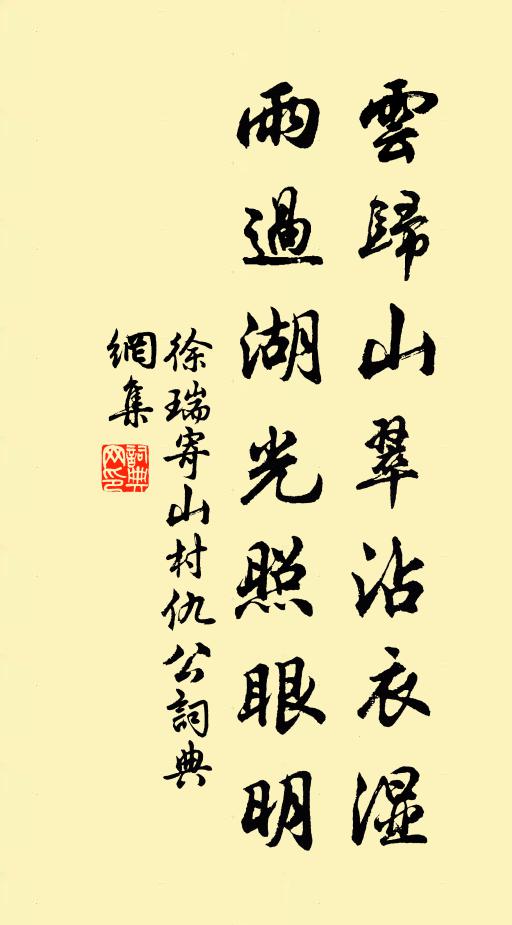 雲歸山翠沾衣濕
雨過湖光照眼明
徐瑞寄山村仇公詞典
網集
詞典网印